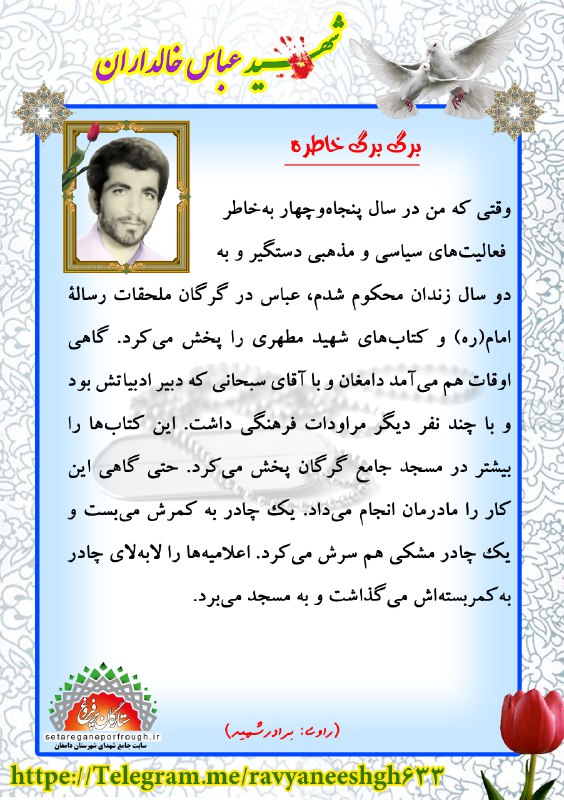 شهید عباس خالداران
برگی برگی خاطره
وقتی که من در سال پنجاه‌وچهار به‌خاطر
فعالیت‌های سیاسی و مذهبی دستگیر و به
دو سال زندان محکوم شدم، عباس در گرگان ملحقات رسالهٔ
امام(ره) و کتاب‌های شهید مطهری را پخش می‌کرد. گاهی
اوقات هم می‌آمد دامغان و با آقای سبحانی که دبیر ادبیاتش بود
و با چند نفر دیگر مراودات فرهنگی داشت. این کتاب‌ها را
بیشتر در مسجد جامع گرگان پخش می‌کرد. حتی گاهی این
کار را مادرمان انجام می‌داد. یک چادر به کمرش می‌بست و
یک چادر مشکی هم سرش می‌کرد. اعلامیه‌ها را لابه‌لای چادر
به‌کمربسته‌اش می‌گذاشت و به مسجد می‌برد.
ستارگان پرفروغ
setareganeporfrough.ir
سایت جامع شهدای شهرستان دامغان
(راوی: برادرشهید)
https://Telegram.me/ravyaneeshgh۶۳۳